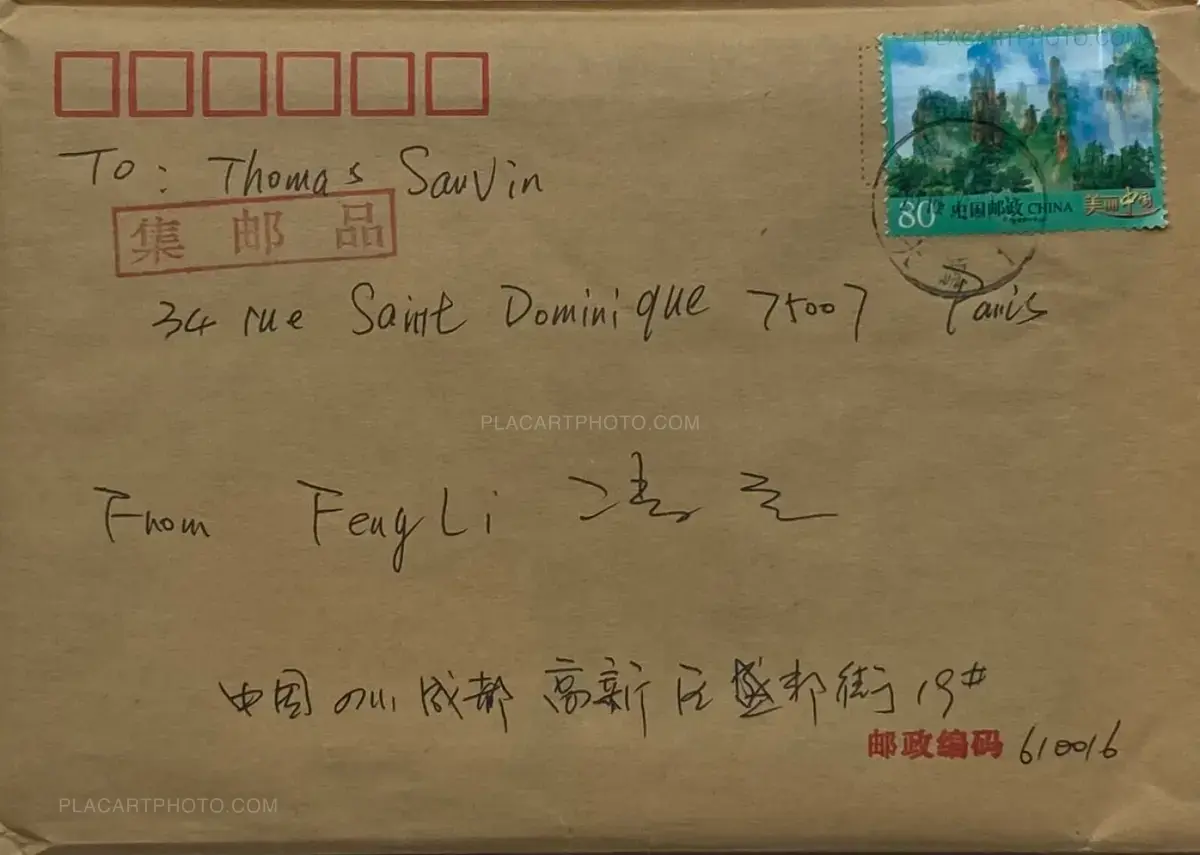 PLACARTPHOTO.COM
To: Thomas Sauvin
集邮品
80 中国邮政 CHINA 美丽中国
34 rue Saint Dominique 75007 Paris
PLACARTPHOTO.COM
From Feng Li 冯立
中国 四川 成都 高新区盛邦街19#
邮政编码 610016
PLACARTPHOTO.COM